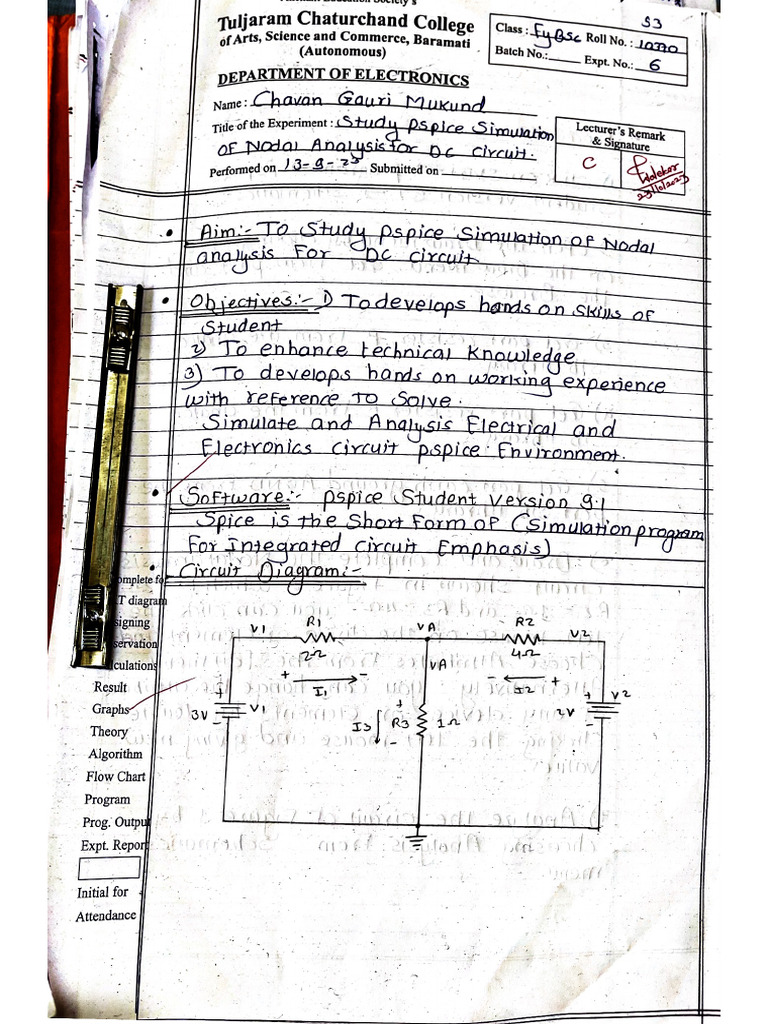 Tuljaram Chaturchand College
of Arts, Science and Commerce, Baramati
(Autonomous)
DEPARTMENT OF ELECTRONICS
53
Class : FyBSc Roll No. :
Batch No.: Expt. No.: 6
Name : Chavan Gauri Mukund
Title of the Experiment : Study pspice Simulation
of Nodal Analysis for DC circuit.
Performed on 13-9-23 Submitted on
Lecturer's Remark
& Signature
C
• Aim:- To Study pspice Simulation of Nodal
analysis For DC circuit
• Objectives:- 1) To develops hands on skills of
Student
2) To enhance technical Knowledge
3) To develops hands on working experience
with reference to Solve.
Simulate and Analysis Electrical and
Electronics circuit pspice Environment.
• Software:- pspice Student Version 9.1
Spice is the Short Form of (Simulation program
For Integrated circuit Emphasis)
• Circuit Diagram:-
V1 R1 VA R2 V2
2Ω VA 4Ω
+ - - +
I1 I2
3V + - V1 I3 + R3 - 1Ω 2V + - V2
omplete for
T diagram
signing
servation
culations
Result
Graphs
Theory
Algorithm
Flow Chart
Program
Prog. Output
Expt. Report
Initial for
Attendance